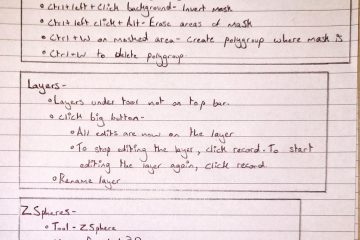 Ctrl + left + Click background - Invert mask
Ctrl + left click + Alt - Erase areas of mask
Ctrl + W on masked area - Create polygroup where mask is
Ctrl + W to delete polygroup
Layers -
Layers under tool not on top bar.
click big button -
All edits are now on the layer
To stop editing the layer, click record. To start
editing the layer again, click record.
Rename layer
Z Spheres -
Tool - ZSphere